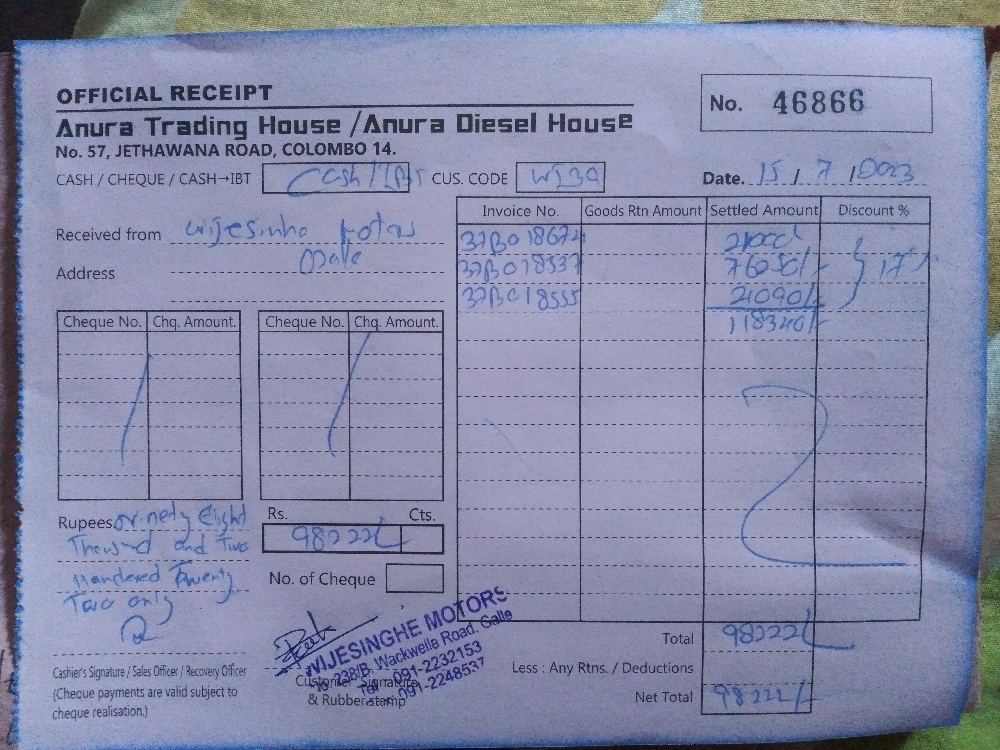 OFFICIAL RECEIPT
No. 46866
Anura Trading House /Anura Diesel House
No. 57, JETHAWANA ROAD, COLOMBO 14.
CASH / CHEQUE / CASH→IBT Cash / IBT CUS. CODE
Date. 15 / 7 / 2023
Received from Wijesinha Motors
Address Galle
Invoice No. Goods Rtn Amount Settled Amount Discount %
37B018674
37B018537 76050/-
37B018555 21090/- 17%
118340/-
Cheque No. Chq. Amount. Cheque No. Chq. Amount.
Rupees Ninety Eight
Thousand and Two
Hundered Twenty
Two only
Rs. Cts.
98222/-
No. of Cheque
Cashier's Signature / Sales Officer / Recovery Officer
(Cheque payments are valid subject to
cheque realisation.)
WIJESINGHE MOTORS
No. 238/B, Wackwella Road, Galle
Tel: 091-2232153
091-2248537
Customer Signature
& Rubber stamp
Total 98222/-
Less : Any Rtns. / Deductions
Net Total 98222/-